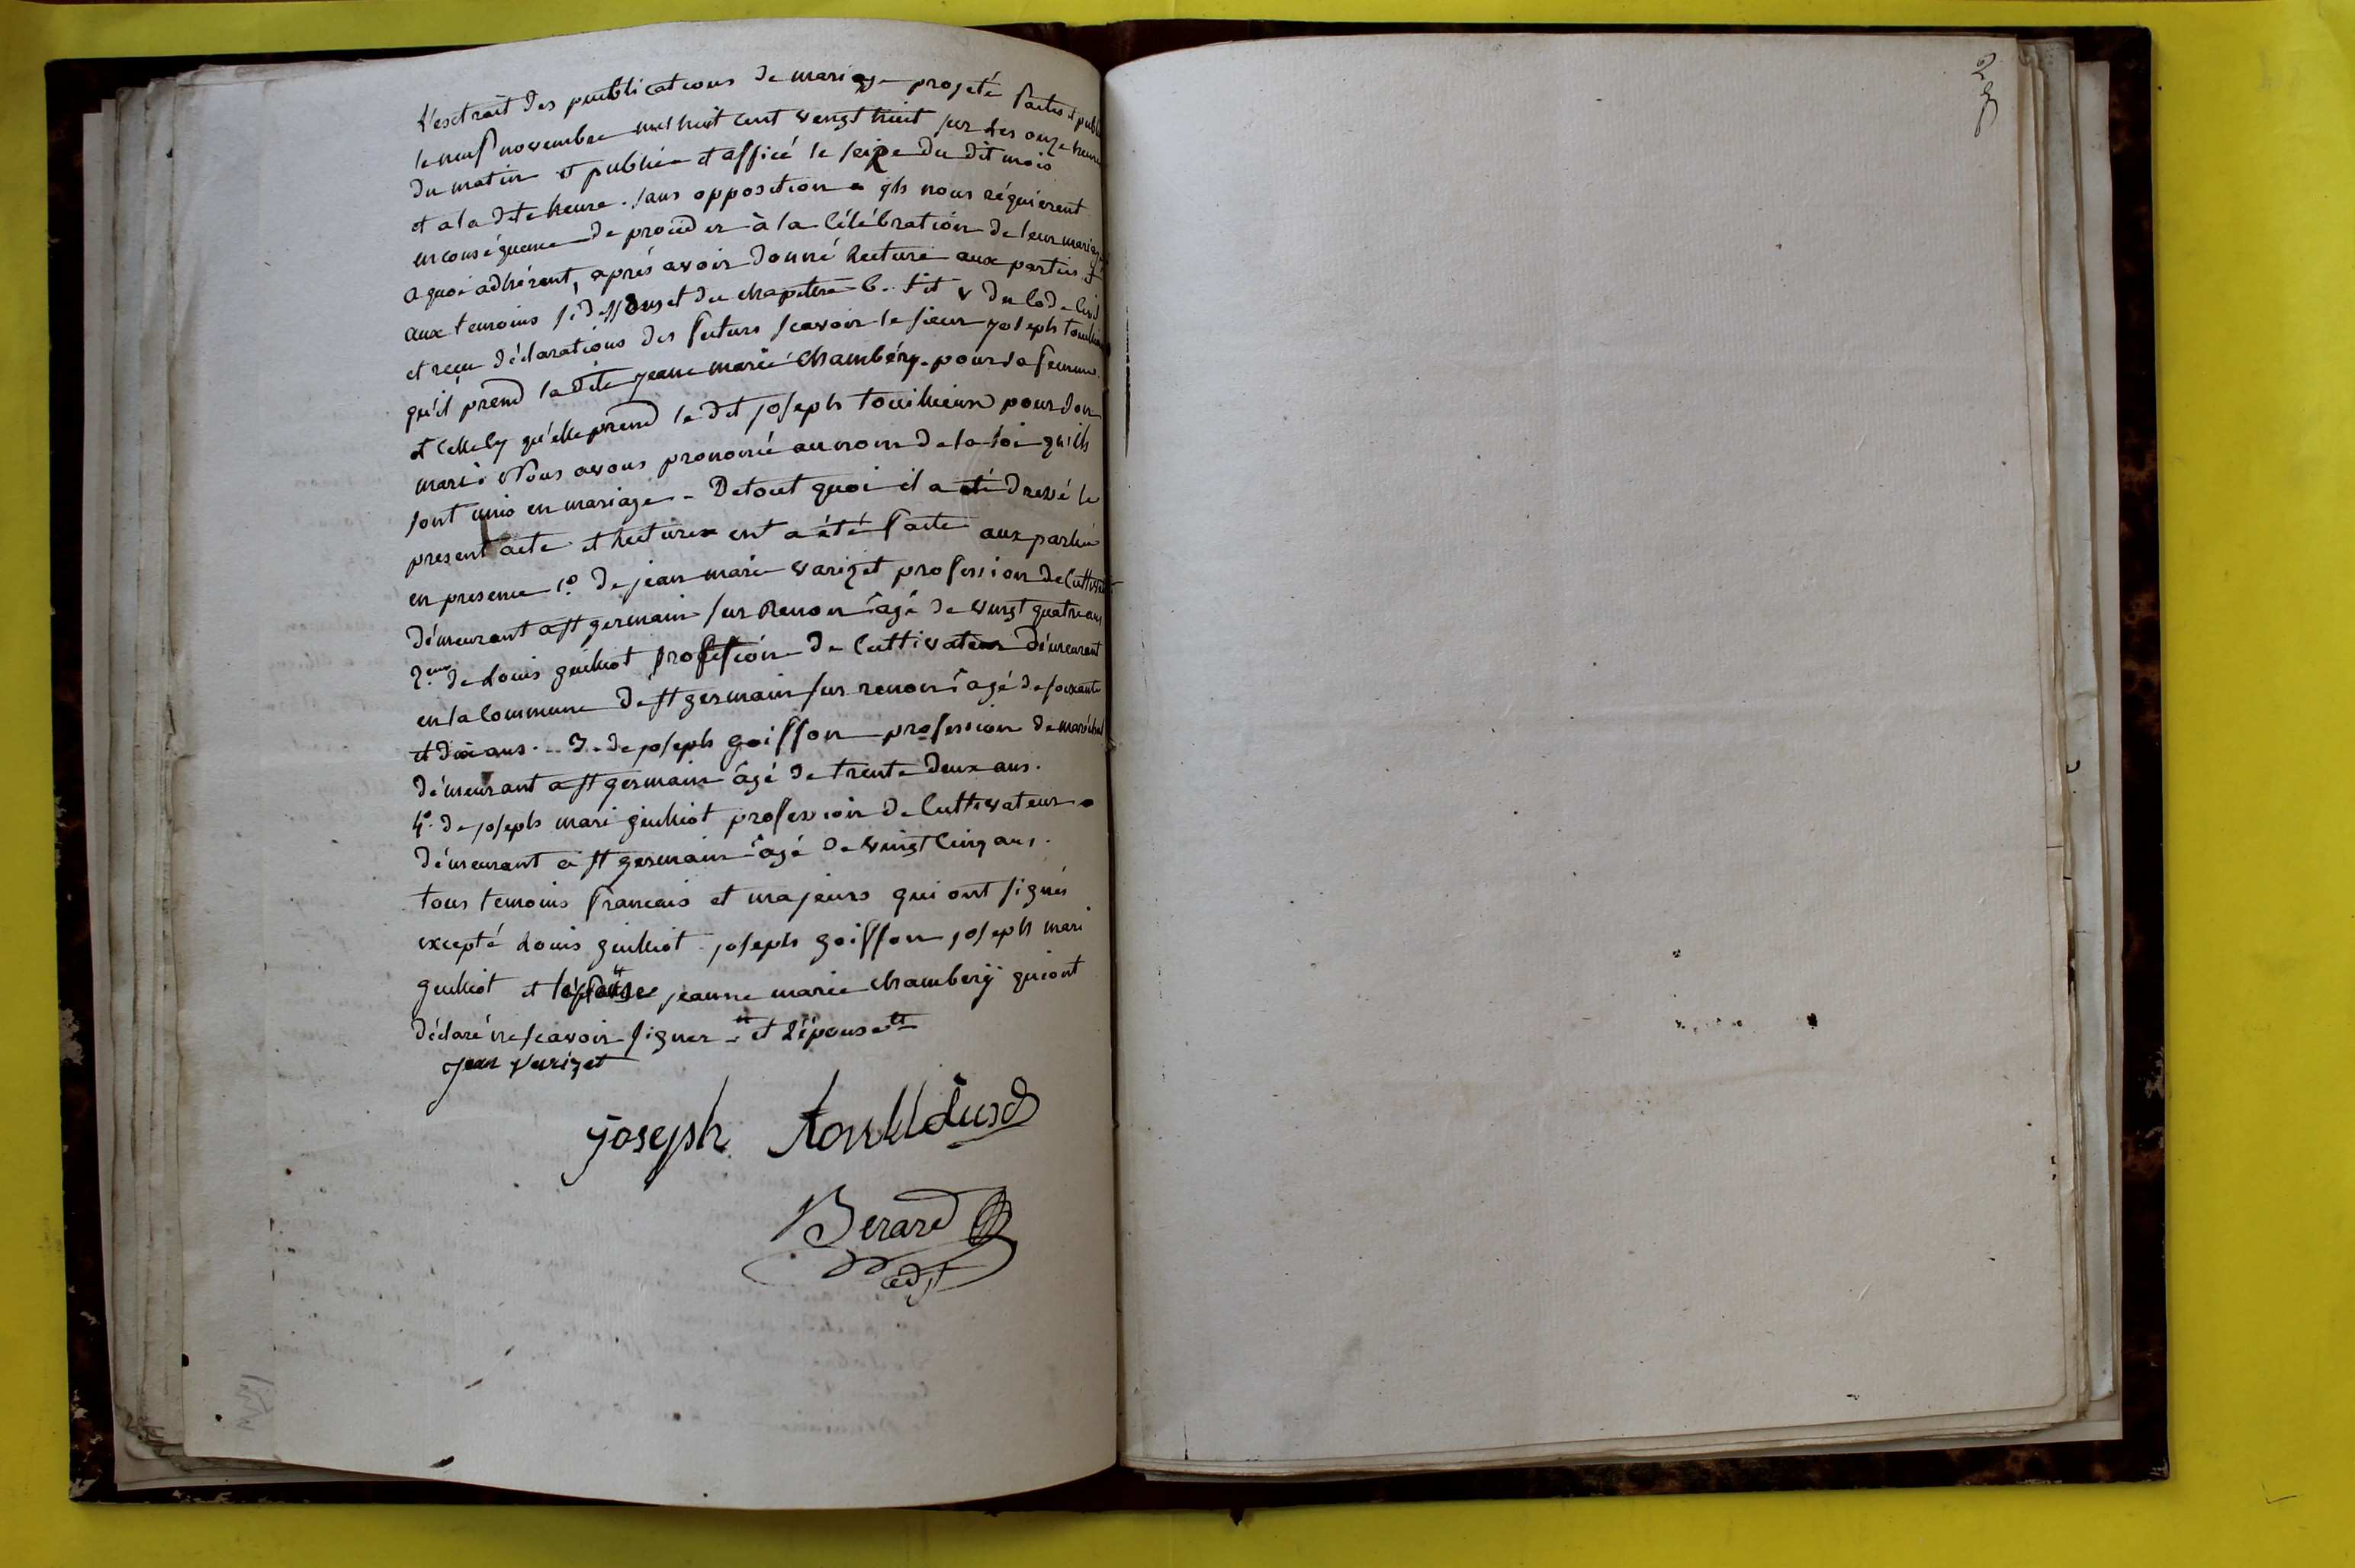 L'esctrait des publications de mariage projeté faites et publ
le neuf novembre mil huit cent vengt huit sur les onze heure
du matin et publiée et afficé le seize du dit mois
et a la dite heure. sans opposition qls nous réquiérent
en conséquence de procéder à la célébration de leur mariage
a quoi adhérent, aprés avoir donné lecture aux parties et
aux temoins ci dessus et du chapitre 6. tit v du Code Civil
et reçu déclarations des futurs scavoir le sieur joseph
qu'il prend la dite jeanne marie Chambéry. pour sa femme.
et celle cy qu'elle prend le dit joseph touillieux pour son
mari. Nous avons prononcé au nom de la loi quils
sont unis en mariage - De tout quoi il a été dressé le
present acte et lecture en a été faite aux parties
en presence 1.o de jean marie varizet profession de Cultivat
démeurant a st germain sur Renon âgé de vingt quatre ans
2.eme de Louis guilliot profession de Cultivateur démeurant
en la Commune de st germain sur renon âgé de soixante
et dix ans. .. 3. de joseph goiffon profession de maréchal
démeurant a st germain âgé de trente deux ans.
4.o de joseph mari guilliot profession de Cultivateur
démeurant a st germain âgé de vingt cinq ans.
tous temoins francais et majeurs qui ont signés
excepté Louis guilliot joseph goiffon joseph mari
guilliot et jeanne marie chambery qui ont
déclaré ne scavoir signer - et L'épouse
Jean Varizet
joseph
Berard
adjt
29